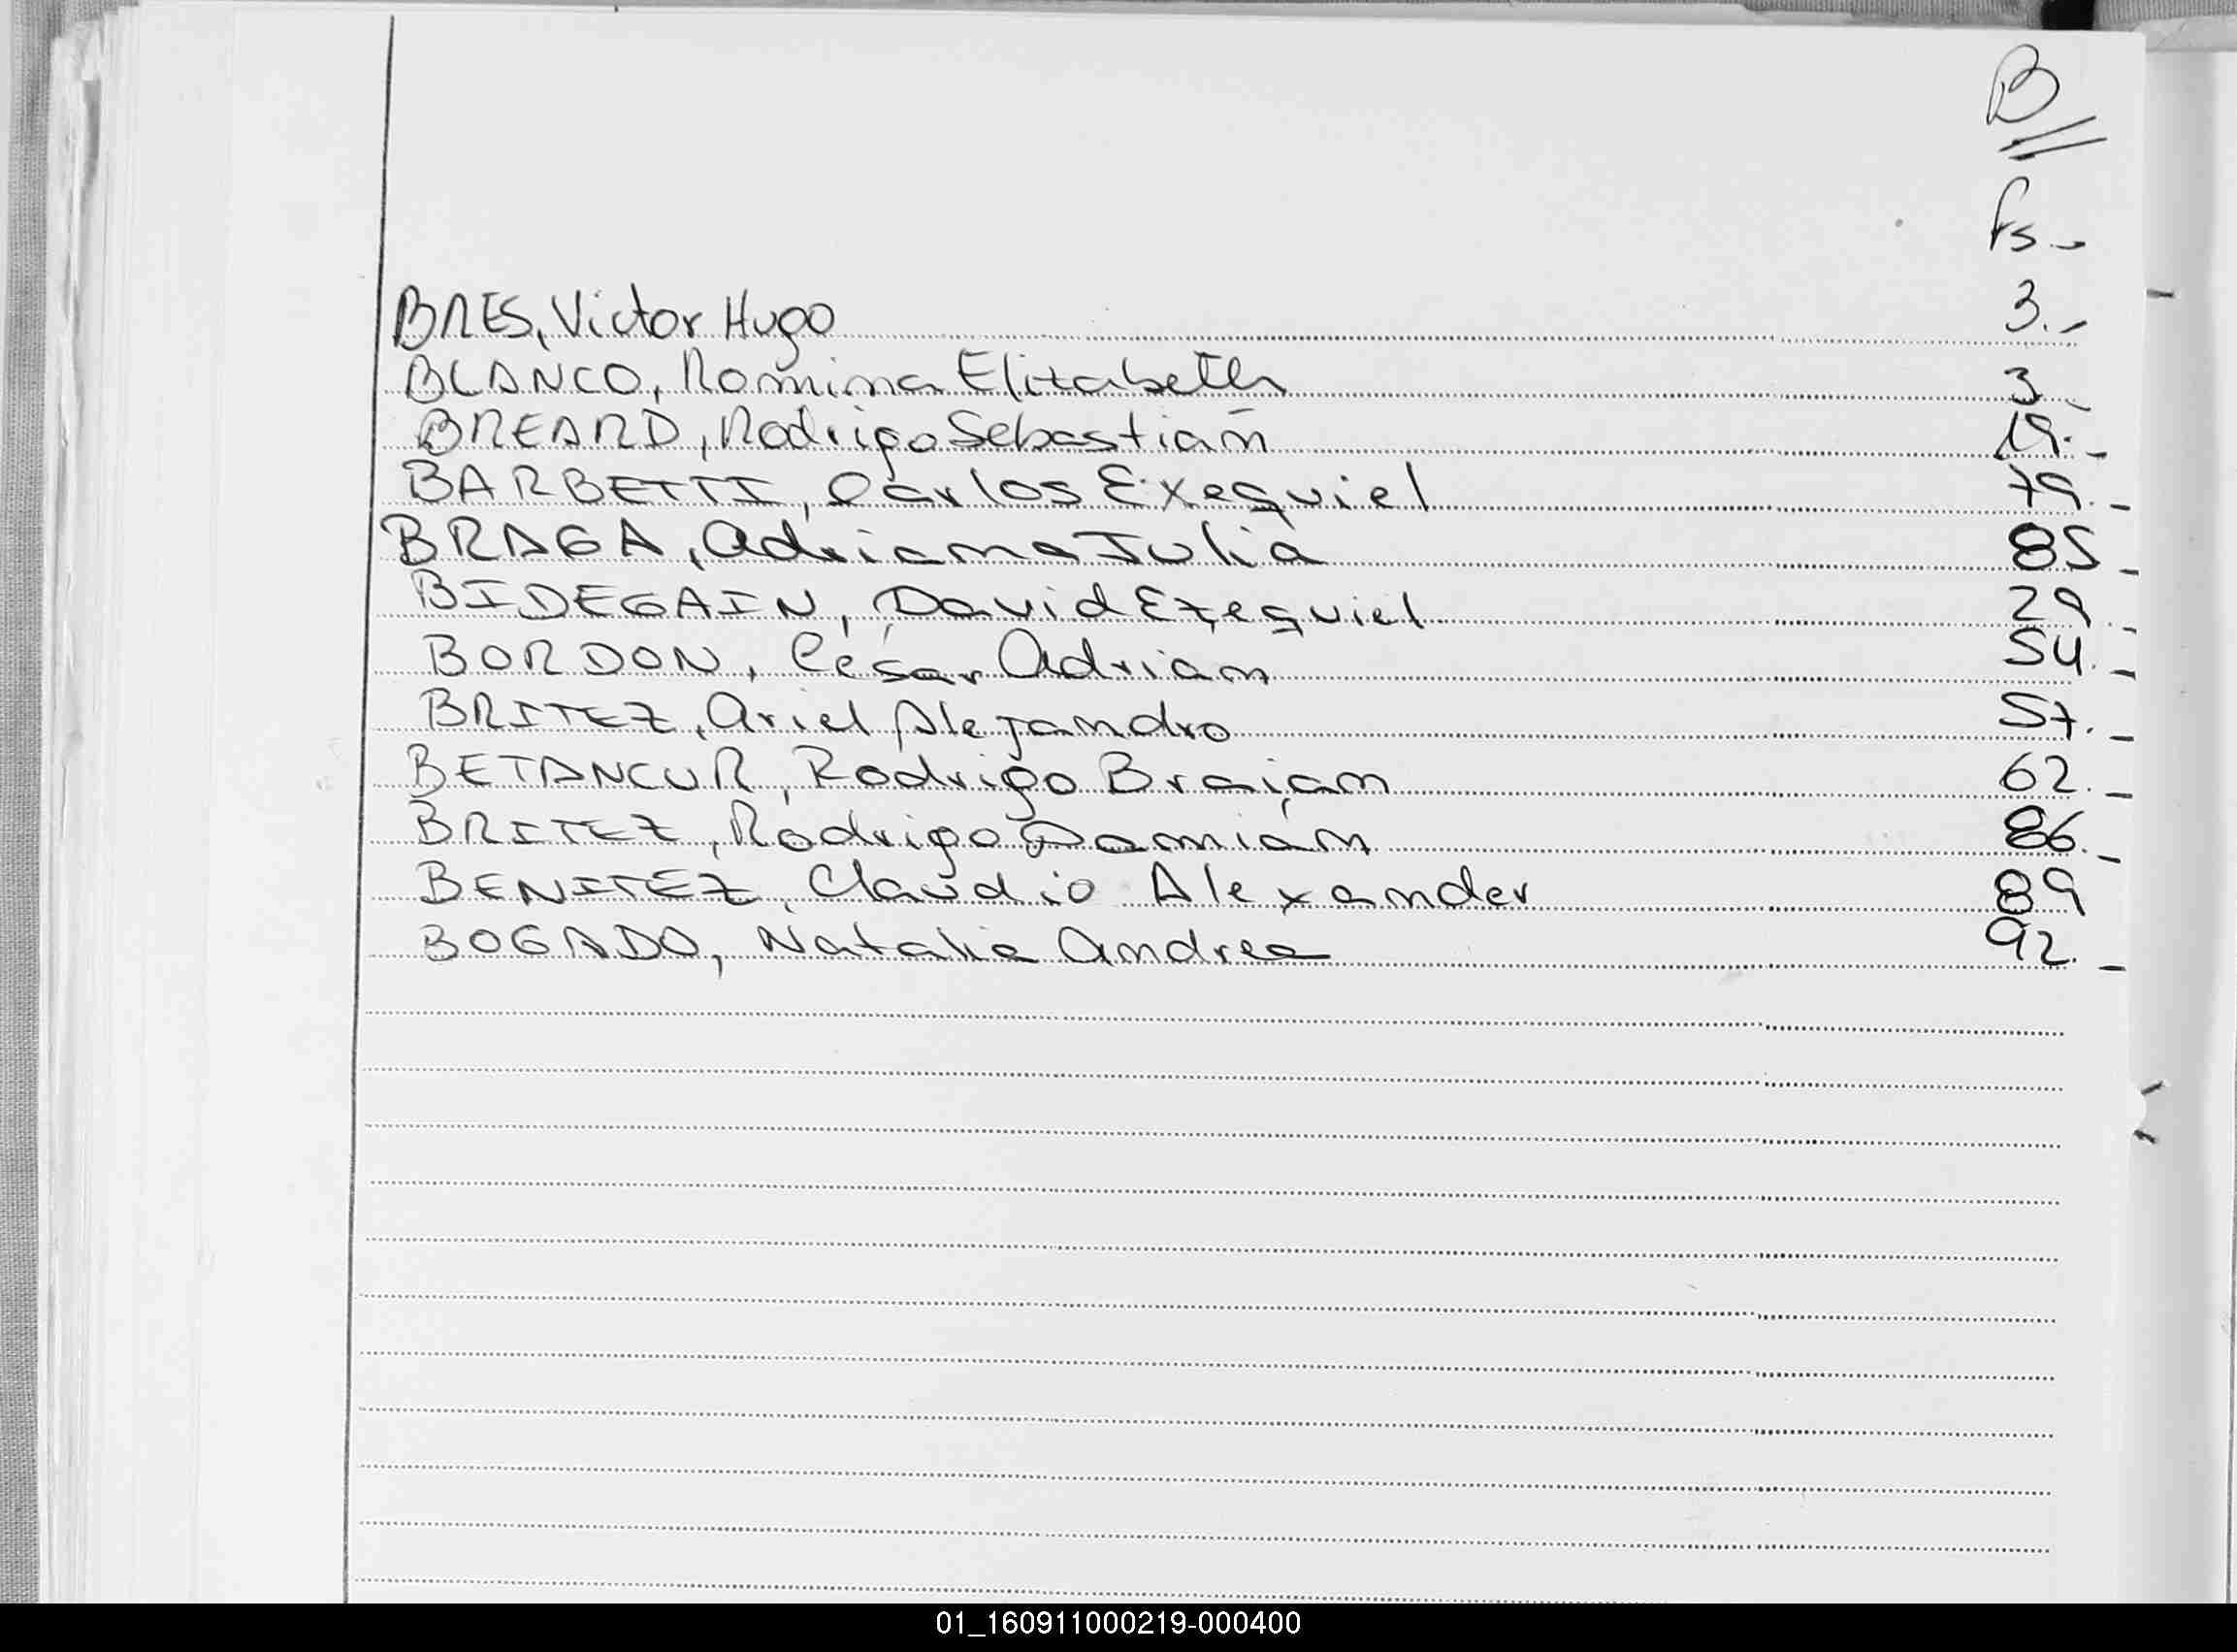 B
Fs.-
BRES, Victor Hugo 3.-
BLANCO, Romina Elizabeth 3.-
BREARD, Rodrigo Sebastian 19.-
BARBETTI, Carlos Exequiel 79.-
BRAGA, Adriana Julia 85.-
BIDEGAIN, David Ezequiel 29.-
BORDON, César Adrian 54.-
BRITEZ, Ariel Alejandro 57.-
BETANCUR, Rodrigo Braian 62.-
BRITEZ, Rodrigo Damián 86.-
BENITEZ, Claudio Alexander 89
BOGADO, Natalia Andrea 92.-
01_160911000219-000400